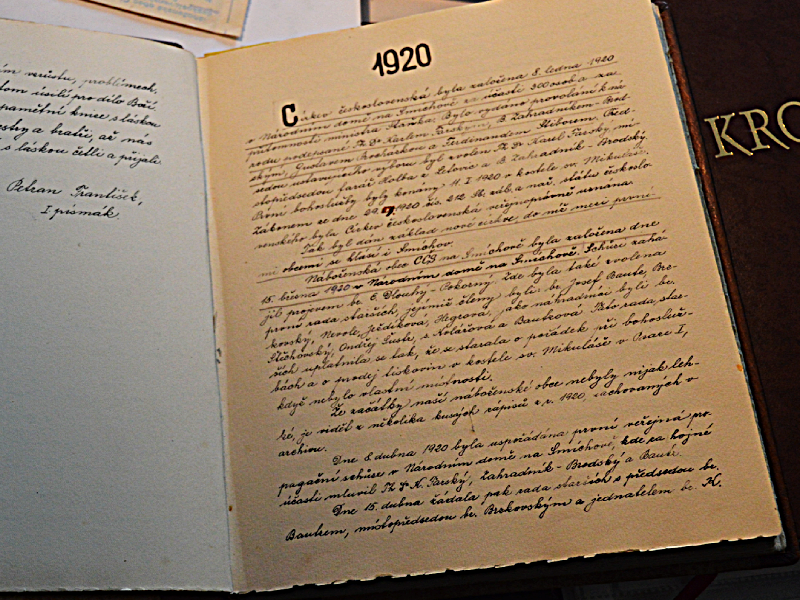 ém vznstu, problémech,
tom úsilí pro dílo Boží.
pamětní knize s láskou
sestry a bratři, ať nás
s láskou četli a přijali.
Petran František,
I. písmák.
1920
Církev československá byla založena 8. ledna 1920
v Národním domě na Smíchově za účasti 200 osob a za
přítomnosti ministra Staňka. Bylo vydáno provolání k ná-
rodu podepsané Th Dr Karlem Farským, B. Zahradníkem-Brod-
ským, Gustavem Procházkou a Ferdinandem Stiborem. Před-
sedou ustaveného výboru byl zvolen Th Dr Karel Farský, mí-
stopředsedou farář Kolba z Letovic a B. Zahradník-Brodský.
První bohoslužby byly konány 11. I. 1920 v kostele sv. Mikuláše.
Zákonem ze dne 29. 1920 čís. 212 Sb. zák. a nař. státu českoslo-
venského byla Církev československá veřejnoprávně uznána.
Tak byl dán základ nové církve do níž mezi první-
mi obcemi se hlásí i Smíchov.
Náboženská obec CČS na Smíchově byla založena dne
15. března 1920 v Národním domě na Smíchově. Schůzi zahá-
jil projevem br. E. Dlouhý-Pokorný. Zde byla také zvolena
první rada starších, jejímiž členy byli: br. Josef Bautz, Br-
kovský, Nevole, Jedličková, Hegrová, jako náhradníci byli br.
Stěhovský, Ondřej Šustr, s. Kolářová a Bautzová. Tato rada star-
ších uplatnila se tak, že se starala o pořádek při bohosluž-
bách a o prodej tiskovin v kostele sv. Mikuláše v Praze I,
když nebylo vlastní místnosti.
Že začátky naší náboženské obce nebyly nijak leh-
ké, je vidět z několika kusých zápisů z r. 1920, uchovaných v
archivu.
Dne 8. dubna 1920 byla uspořádána první veřejná pro-
pagační schůze v Národním domě na Smíchově, kde za hojné
účasti mluvil Th Dr K. Farský, Zahradník-Brodský a Bautz.
Dne 15. dubna žádala pak rada starších s předsedou br.
Bautzem, místopředsedou br. Brkovským a jednatelem br. K.
KRO